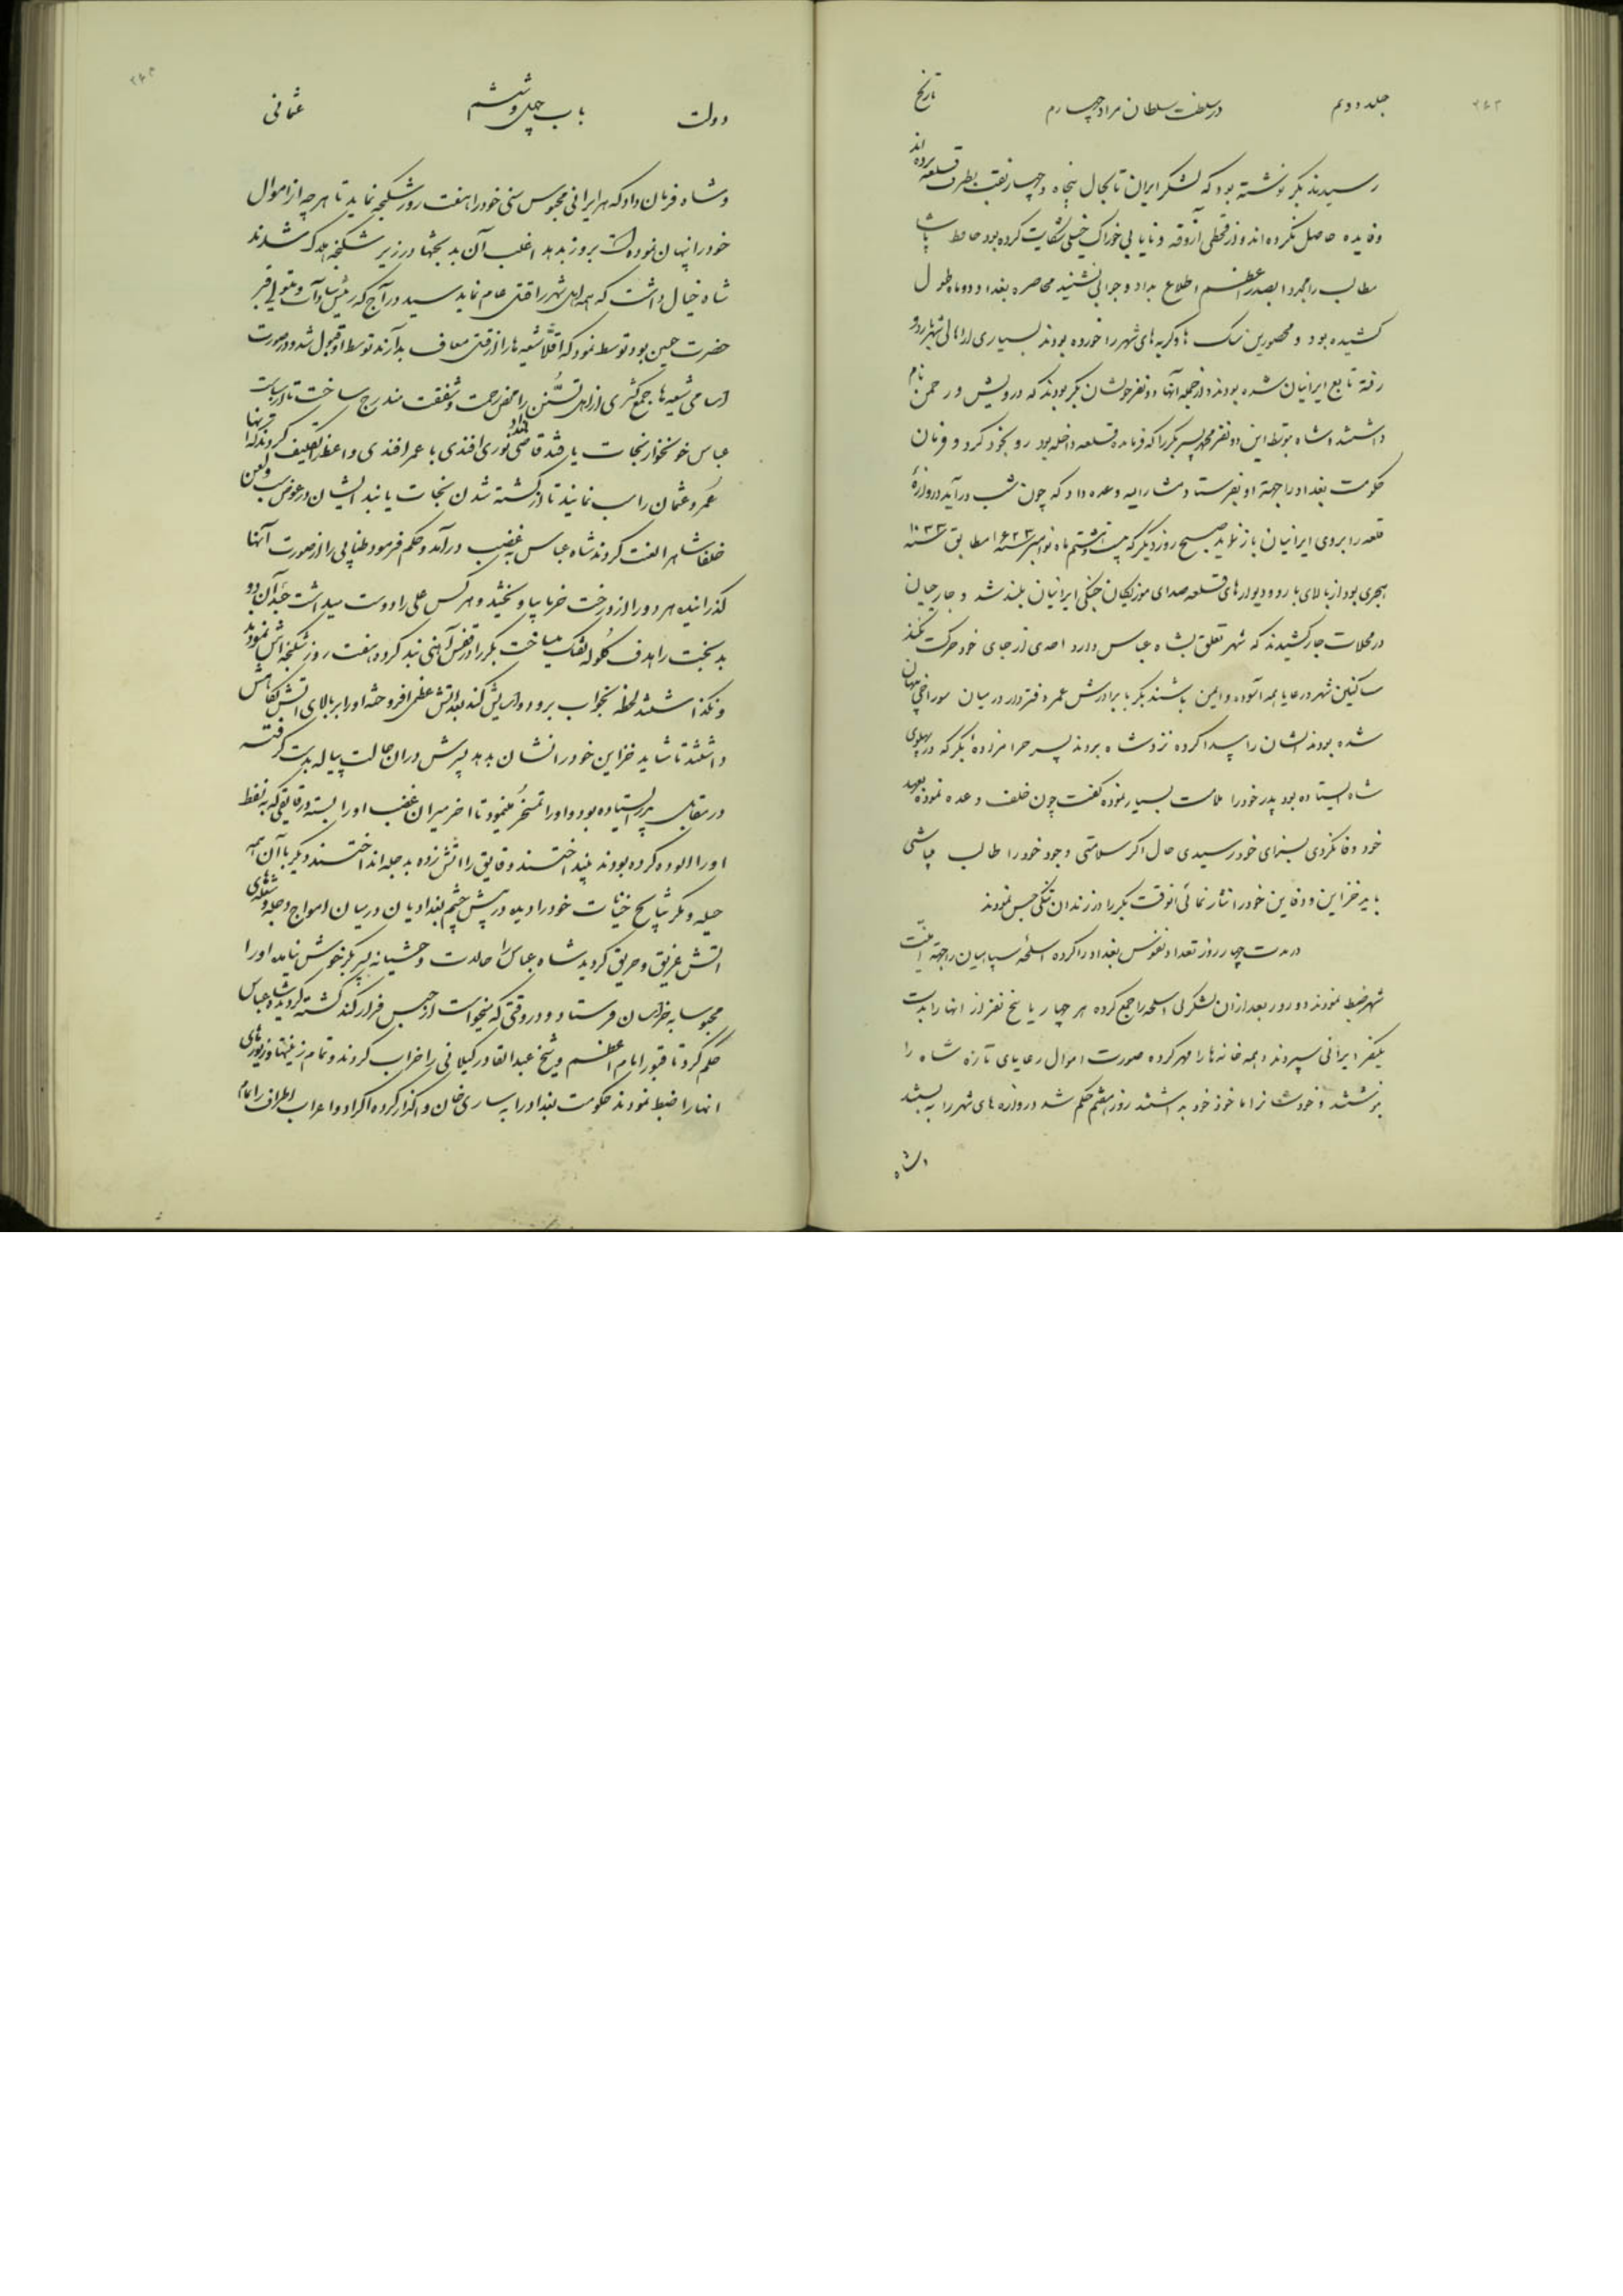 جلد دویم
در سلطنت سلطان مراد چهارم
تاریخ
رسیدند بکر نوشته بود که لشکر ایران تا بحال پنجاه و چهار نقب بطرف قلعه برده اند
و فایده حاصل نکرده اند و از قحطی آزوقه و نایابی خوراک خیلی شکایت کرده بود حافظ پاشا
مطالب را مجددا بصدر اعظم اطلاع بداد و جوابی نشنید محاصره بغداد دو ماه طول
کشیده بود و محصورین سک ها و کربه های شهر را خورده بودند بسیاری از اهالی شهر باردو
رفته تابع ایرانیان شده بودند و از جمله آنها دو نفر خویشان بکر بودند که درویش و رحمن نام
داشتند شاه بتوسط این دو نفر محمد پسر بکر را که فرمانده قلعه داخله بود رو بخود کرد و فرمان
حکومت بغداد را بجهة او بفرستاد مشارالیه وعده داد که چون شب درآید دروازهٔ
قلعه را بروی ایرانیان باز نماید صبح روز دیکر که بیست و هشتم ماه نوامبر سنه ۱۶۲۳ مطابق سنه ۱۰۳۳
هجری بود از بالای بارو و دیوارهای قلعه صدای موزیکان جنکی ایرانیان بلند شد و جارچیان
در محلات جار کشیدند که شهر تعلق بشاه عباس دارد احدی از جای خود حرکت نکند
ساکنین شهر و رعایا همه آسوده و ایمن باشند بکر با برادرش عمر دفتردار در میان سوراخی پنهان
شده بودند ایشان را پیدا کرده نزد شاه بردند پسر حرامزادهٔ بکر که در پهلوی
شاه ایستاده بود پدر خود را ملامت بسیار نموده کفت چون خلف وعده نموده بعهد
خود وفا نکردی بسزای خود رسیدی حال اکر سلامتی وجود خود را طالب میباشی
باید خزاین و دفاین خود را نثار نمائی آنوقت بکر را در زندان تنکی حبس نمودند
در مدت چهار روز تعداد نفوس بغداد را کرده اسلحه سپاهیان را بجهة امنیّت
شهر ضبط نمودند دو روز بعد از آن لشکر لی اسلحه را جمع کرده هر چهار یا پنج نفر از انها را بدست
یکنفر ایرانی سپردند و همه خانه ها را مهر کرده صورت اموال رعایای تازه شاه را
نوشتند و خودشان را ماخوذ داشتند روز هفتم حکم شد دروازه های شهر را به بستند
و شاه
دولت
باب چهل و ششم
عثمانی
و شاه فرمان داد که هر ایرانی محبوس سنی خود را هفت روز شکنجه نماید تا هر چه از اموال
خود را پنهان نموده است بروز بدهد اغلب آن بدبختها در زیر شکنجه هلاک شدند
شاه خیال داشت که همه اهل شهر را قتل عام نماید سید دراج که رئیس سادات و متولی قبر
حضرت حسین بود توسط نمود که اقلاً شیعه ها را از قتل معاف بدارند توسط او قبول شد و در صورت
اسامی شیعه ها جمع کثیری از اهل تسنّن را محض رحمت و شفقت مندرج ساخت تا از سیاست
عباس خونخوار نجات یافتند قاضی بغداد نوری افندی با عمر افندی واعظ را تکلیف کردند که تنها
عُمر و عثمان را سب نمایند تا از کشته شدن نجات یابند ایشان در عوض سب و لعن
خلفا شاه را لعنت کردند شاه عباس به غضب درآمد و حکم فرمود طنابی را از صورت آنها
گذرانیده هر دو را از درخت خرما بیاویختند و هر کس علی را دوست میداشت جثهٔ آن دو
بدبخت را هدف کلوله تفنک میساخت بکر را در قفس آهنی بند کرده هفت روز شکنجه اش نمودند
و نکذاشتند لحظه بخواب برود و آسایش کند بعد آتش عظیمی افروخته او را بر بالای آتش نکاهش
داشتند تا شاید خزاین خود را نشان بدهد پسرش در ان حالت پیاله بدست گرفته
در مقابل پدر ایستاده بود و او را تمسخر مینمود تا اخر میران غضب او را بسته در قایقی که به نفط
او را الوده کرده بودند بینداختند و قایق را آتش زده بدجله انداختند و بکر با آن همه
حیله و مکر نتایج خیانت خود را دیده در پیش چشم بغدادیان در میان امواج دجله و شعله های
اتش غریق و حریق کردید شاه عباس را حالت وحشیانه پسر بکر خوش نیامده او را
محبوسا به خراسان فرستاد و در وقتی که میخواست از حبس فرار کند کشته کردید شاه عباس
حکم کرد تا قبور امام اعظم و شیخ عبدالقادر کیلانی را خراب کردند و تمام زینتها و زیورهای
انها را ضبط نمودند حکومت بغداد را به ساری خان واکذار کرده اکراد و اعراب اطراف را تمام